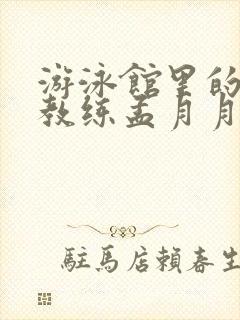 游泳館里的
教练孟月月
駐馬店賴春生